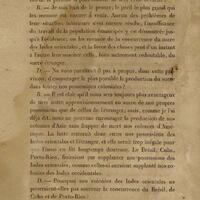 R. — Je suis loin de le penser; le péril le plus grand qui
les menace est encore à venir. Aucun des problèmes de
leur situation intérieure n'est encore résolu. L'insuffisance
du travail de la population émancipée y est démontrée jus-
qu'à l'évidence; on les menace de la concurrence du sucre
des Indes orientales; et la force des choses peut d'un instant
à l'autre leur susciter celle, bien autrement redoutable, du
sucre étranger.
D. — Ne vous paraîtrait-il pas à propos, dans cette pré-
vision, d'encourager le plus possible la production du sucre
dans toutes nos possessions coloniales?
R. — Il est clair qu'il nous sera toujours plus avantageux
de tirer notre approvisionnement en sucre de nos propres
possessions que de celles de l'étranger; mais, comme je l'ai
déjà dit, nous ne pouvons encourager la production de nos
colonies d'Asie sans frapper de mort nos colonies d'Amé-
rique. La lutte restera donc entre nos possessions des
Indes occidentales et l'étranger, et elle serait trop inégale pour
que l'issue en fût longtemps douteuse. Le Brésil, Cuba,
Porto-Rico, finiraient par supplanter nos possessions des
Indes orientales, comme celles-ci auraient supplanté nos co-
lonies des Indes occidentales.
D. — Pourquoi nos colonies des Indes orientales ne
pourraient-elles pas soutenir la concurrence du Brésil, de
Cuba et de Porto-Rico?